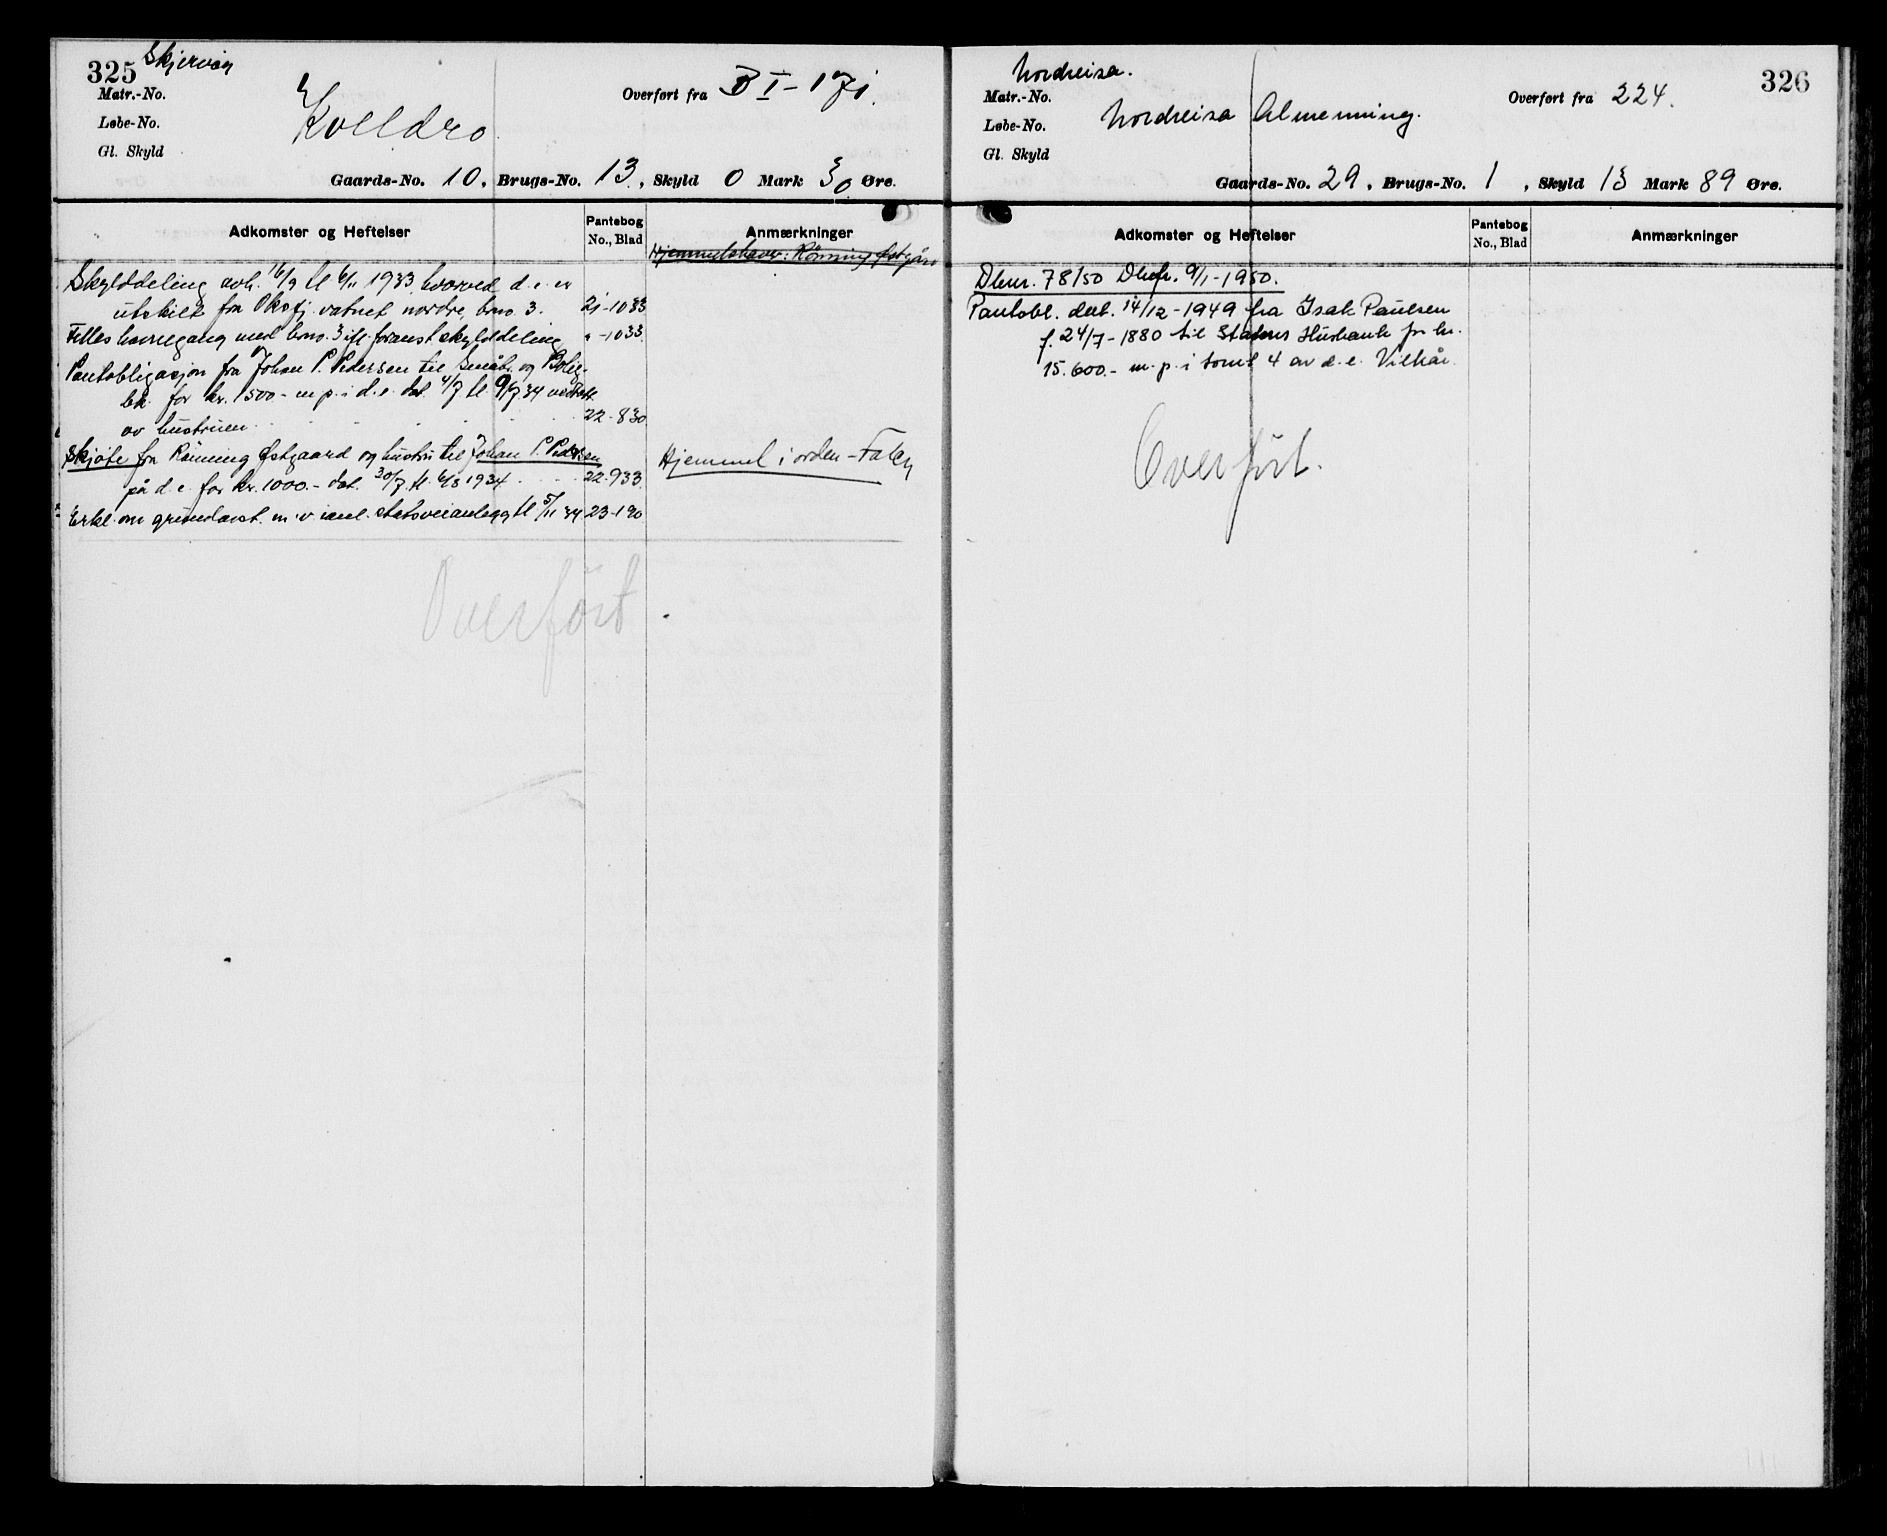 325 Skjervöy
Matr.-No.
Løbe-No.
Gl. Skyld
Kvelldro
Overført fra B I - 171.
Gaards-No. 10. Brugs-No. 13., Skyld 0 Mark 30 Øre.
Adkomster og Heftelser
Pantebog
No., Blad
Anmærkninger
Hjemmelshaver: Rönning Østgård
Skylddeling avh. 16/9 tl 6/11 1933 hvorved d.e. er
utskilt fra Oksfj. vatnet nordre, brno. 3. 21-1033
Felles havnegang med brno. 3 ifl. foranst. skylddeling " -1033
Pantobligasjon fra Johan P. Pedersen til Småbr. og Bolig-
bk. for kr. 1500.- m.p. i d.e. dat. 4/7 tl. 9/7 34 vedtatt
av hustruen 22-830
Skjöte fra Rönning Østgaard og hustru til Johan P. Pedersen
på d.e. for kr. 1000.- dat. 30/7 tl. 6/8 1934 22-933.
Hjemmel i orden - Falch
Erkl. om grundavst. m.v. i anl. statsveianlegg tl 5/11 34 23-190
Overført
Nordreisa.
326
Matr.-No.
Løbe-No.
Gl. Skyld
Nordreisa Almenning.
Overført fra 224.
Gaards-No. 29. Brugs-No. 1, Skyld 13 Mark 89 Øre.
Adkomster og Heftelser
Pantebog
No., Blad
Anmærkninger
Dbnr. 78/50 Dbf. 9/1-1950.
Pantobl. dat. 14/12-1949 fra Isak Paulsen
f. 24/7-1880 til Statens Husbank for kr.
15.600.- m.p. i tomt 4 av d.e. Vilkår.
Overfört.